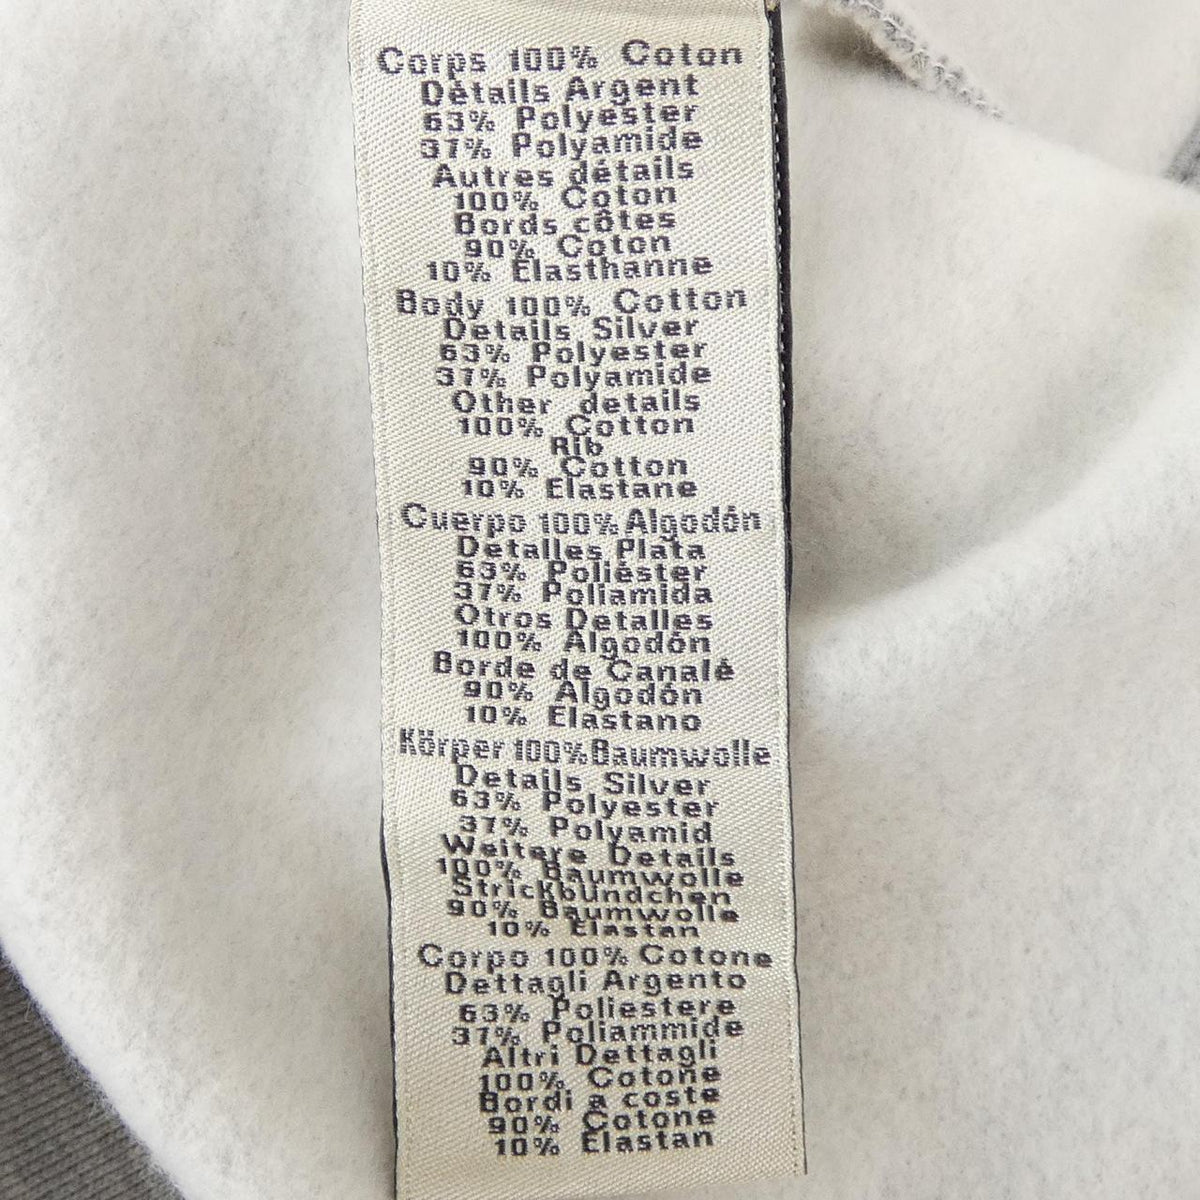 Corps 100% Coton
Détails Argent
63% Polyester
37% Polyamide
Autres détails
100% Coton
Bords côtes
90% Coton
10% Élasthanne
Body 100% Cotton
Details Silver
63% Polyester
37% Polyamide
Other details
100% Cotton
Rib
90% Cotton
10% Elastane
Cuerpo 100% Algodón
Detalles Plata
63% Poliéster
37% Poliamida
Otros Detalles
100% Algodón
Borde de Canalé
90% Algodón
10% Elastano
Körper 100% Baumwolle
Details Silver
63% Polyester
37% Polyamid
Weitere Details
100% Baumwolle
Strickbündchen
90% Baumwolle
10% Elastan
Corpo 100% Cotone
Dettagli Argento
63% Poliestere
37% Poliammide
Altri Dettagli
100% Cotone
Bordi a coste
90% Cotone
10% Elastan